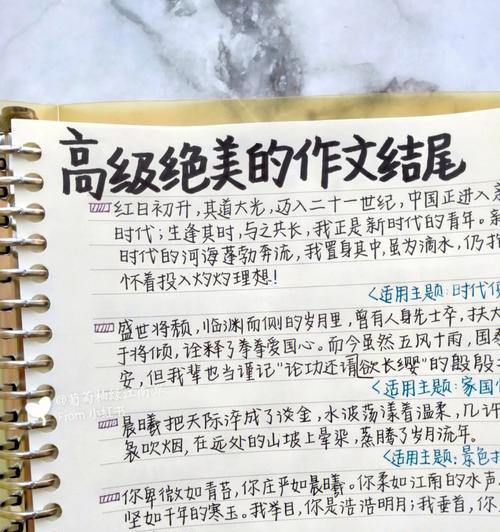 高级绝美的作文结尾
红日初升,其道大光,迈入二十一世纪,中国正进入
时代;生逢其时,与之共长,我正是新时代的青年。新
时代的河海蓬勃奔流,我置身其中,虽为滴水,仍
怀着投入灼灼理想!
<适用主题:时代
盛世将颓,临渊而侧的岁月里,曾有人身先士卒,扶大
于将倾,诠释了拳拳爱国心。而今虽然五风十雨,国泰
安,但我辈也当谨记“论功还请欲长缨”的殷殷
<适用主题:家国
晨曦把天际淬成了淡金,水波荡漾着温柔,几许
袅吹烟,在远处的山坡上晕染,蒸腾了岁月流年。
<适用主题:景色
你卑微如青苔,你庄严如晨曦。你柔如江南的水声
坚如千年的寒玉。我举目,你是浩浩明月;我垂首,你
From 小红书